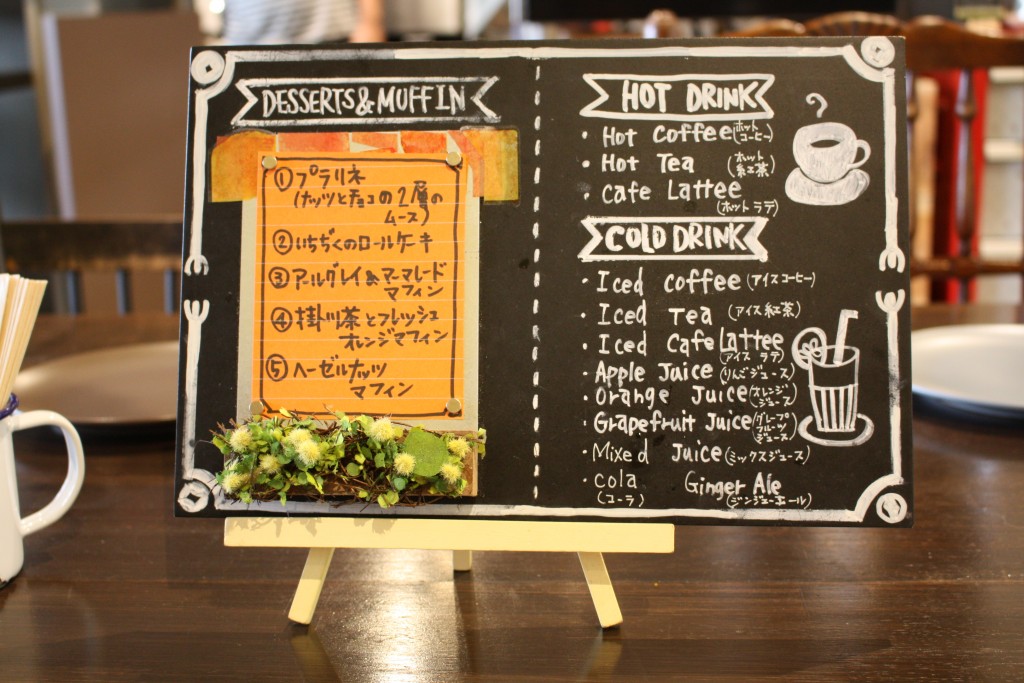 DESSERTS & MUFFIN
①プラリネ
(ナッツとチョコの2層の
ムース)
②いちぢくのロールケーキ
③アールグレイ&マーマレード
マフィン
④掛川茶とフレッシュ
オレンジマフィン
⑤ヘーゼルナッツ
マフィン
HOT DRINK
・Hot Coffee(ホット
コーヒー)
・Hot Tea (ホット
紅茶)
・Cafe Lattee
(ホットラテ)
COLD DRINK
・Iced coffee (アイスコーヒー)
・Iced Tea (アイス紅茶)
・Iced Cafe Lattee
(アイス ラテ)
・Apple Juice (りんごジュース)
・Orange Juice (オレンジ
ジュース)
・Grapefruit Juice (グレープ
フルーツ
ジュース)
・Mixed Juice (ミックスジュース)
・cola Ginger Ale
(コーラ) (ジンジャーエール)